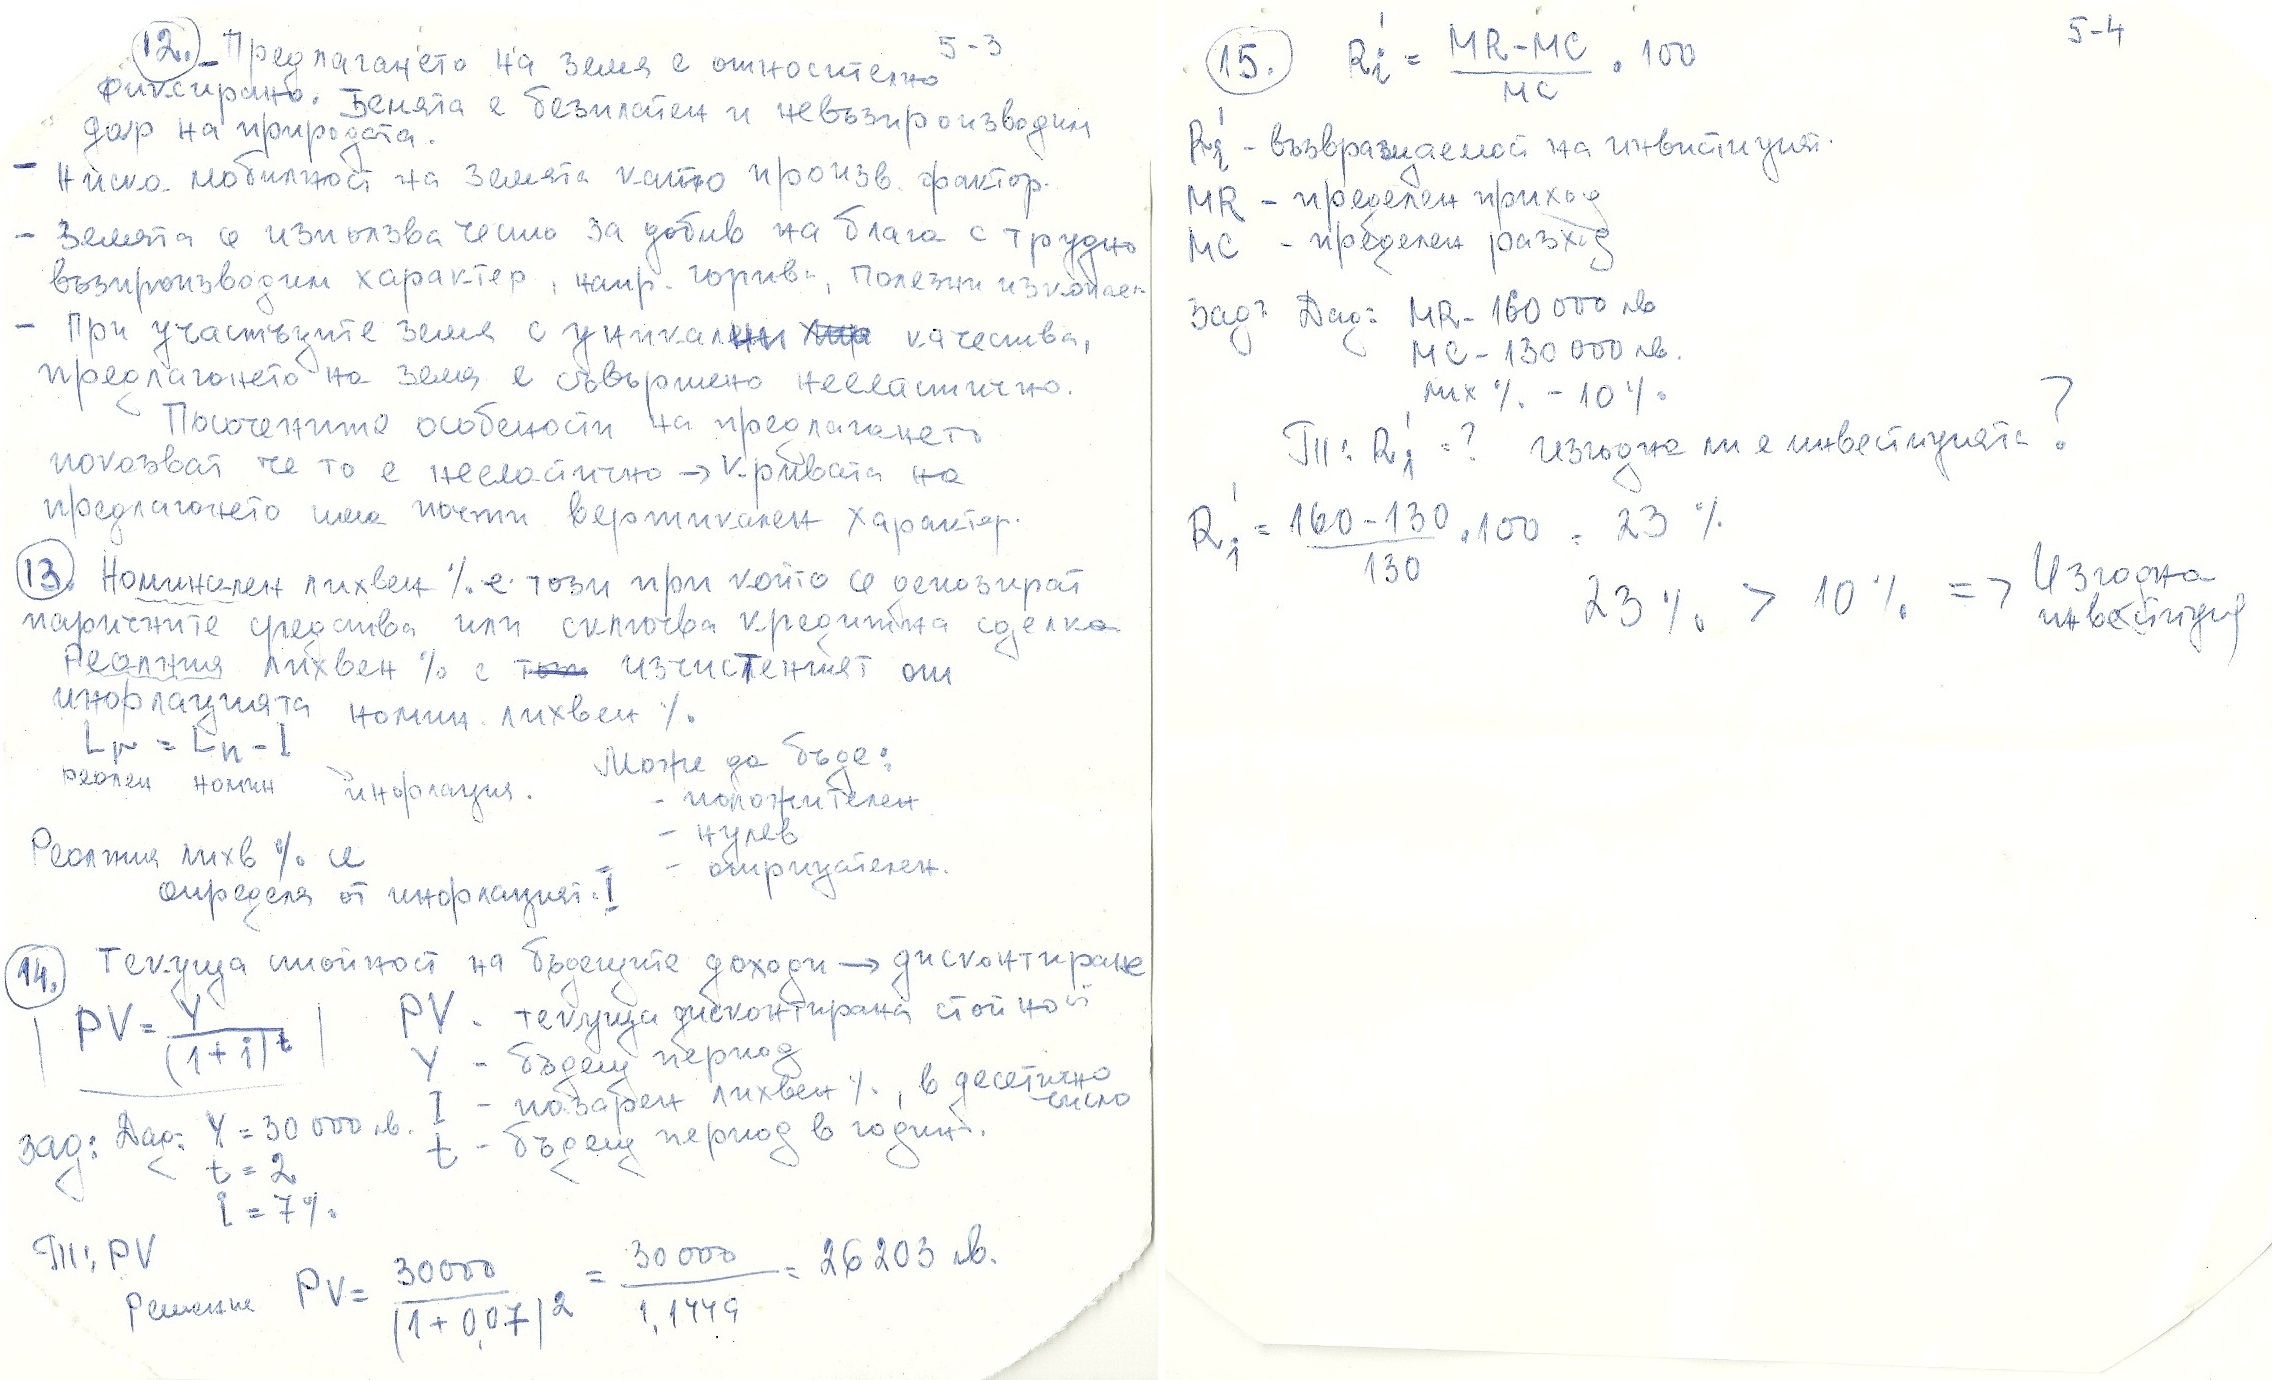 5-3
12. - Предлагането на земя е относително
фиксирано. Земята е безплатен и невъзпроизводим
дар на природата.
- Ниска мобилност на земята като произв. фактор.
- Земята се използва често за добив на блага с трудно
възпроизводим характер, напр. горива, полезни изкопаем
- При участъците земя с уникални качества,
предлагането на земя е съвършено нееластично.
Посочените особености на предлагането
показват че то е нееластично → кривата на
предлагането има почти вертикален характер.
13. Номинален лихвен % е този при който се депозират
паричните средства или сключва кредитна сделка
Реалния лихвен % е изчистеният от
инфлацията номин. лихвен %.
Lr = Ln - I
реален номин инфлация.
Може да бъде:
- положителен
- нулев
- отрицателен.
Реалния лихв % се
определя от инфлацият. I
14. Текуща стойност на бъдещите доходи → дисконтиране
PV = Y / (1+i)^t
PV - текуща дисконтирана стойност
Y - бъдещ период
I - пазарен лихвен %, в десетично число
t - бъдещ период в годин.
зад: Дад: Y = 30 000 лв.
t = 2
I = 7%.
Тп: PV
Решение PV = 30000 / (1+0,07)^2 = 30000 / 1,1449 = 26203 лв.
5-4
15. R'i = (MR-MC) / MC . 100
R'i - възвращаемост на инвестицият.
MR - пределен приход
MC - пределен разход
зад: Дад: MR - 160 000 лв
MC - 130 000 лв.
лих % - 10%.
Тп: R'i = ? изгодна ли е инвестицията?
R'i = (160-130) / 130 . 100 = 23 %
23 % > 10 % => Изгодна
инвестиция